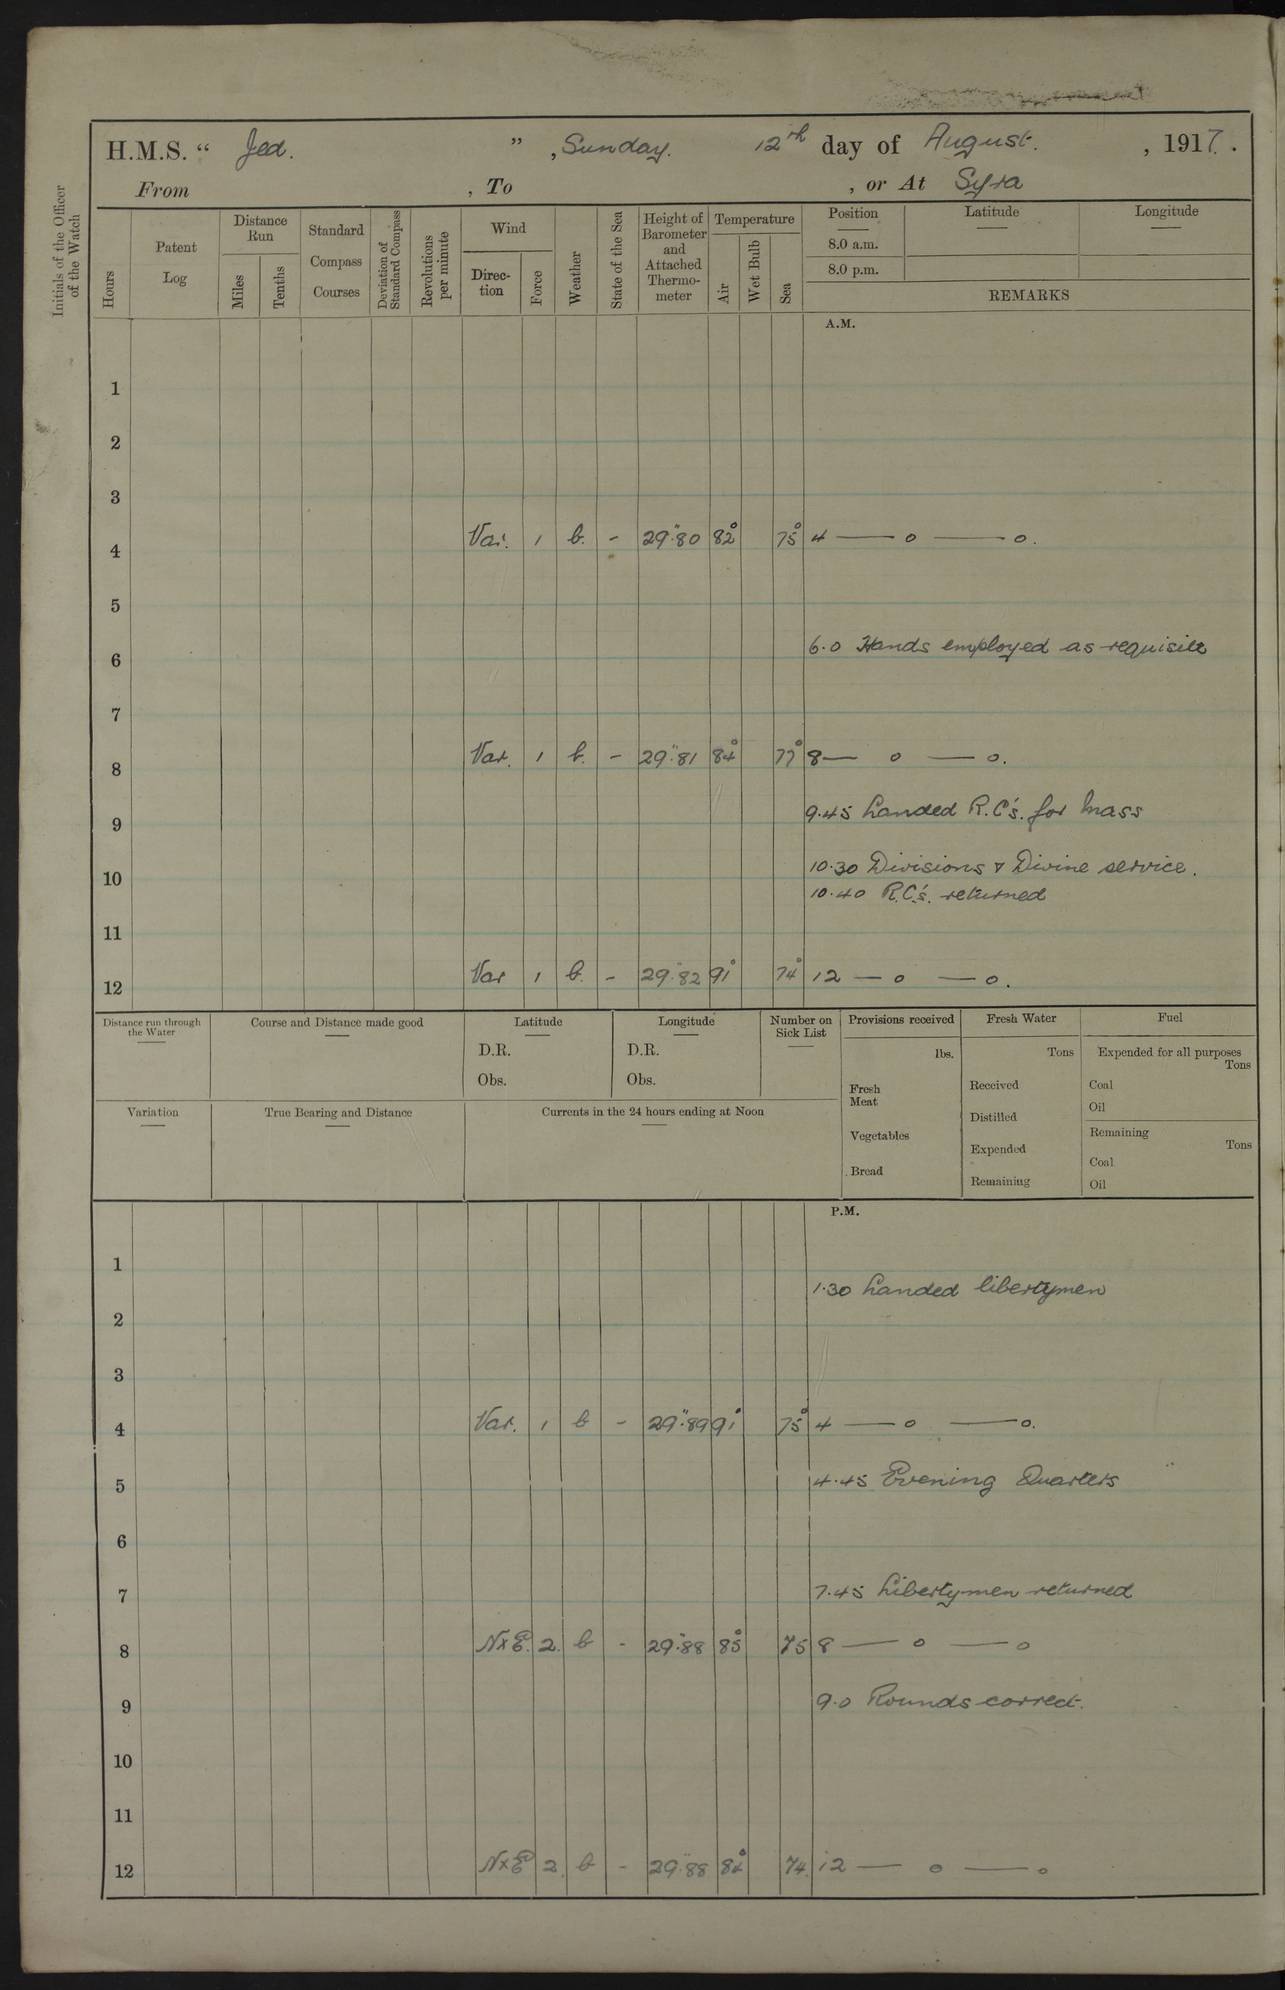 H.M.S. “ Jed. ” , Sunday. 12th day of August. , 1917.
From , To , or At Syra
Initials of the Officer of the Watch
Hours
Patent Log
Distance Run
Miles
Tenths
Standard Compass Courses
Deviation of Standard Compass
Revolutions per minute
Wind
Direc-tion
Force
Weather
State of the Sea
Height of Barometer and Attached Thermo-meter
Temperature
Air
Wet Bulb
Sea
Position Latitude Longitude
8.0 a.m.
8.0 p.m.
REMARKS
A.M.
1
2
3
4 Var. 1 b. - 29".80 82° 75° 4 — o — o.
5
6 6.0 Hands employed as requisite
7
8 Var. 1 b. - 29".81 84° 77° 8 — o — o.
9 9.45 Landed R.C's. for Mass
10 10.30 Divisions & Divine service.
10.40 R.C's. returned
11
12 Var 1 b. - 29".82 91° 74° 12 — o — o.
Distance run through the Water
Course and Distance made good
Latitude
D.R.
Obs.
Longitude
D.R.
Obs.
Number on Sick List
Provisions received
lbs.
Fresh Meat
Vegetables
Bread
Fresh Water
Tons
Received
Distilled
Expended
Remaining
Fuel
Expended for all purposes
Tons
Coal
Oil
Remaining
Tons
Coal
Oil
Variation
True Bearing and Distance
Currents in the 24 hours ending at Noon
P.M.
1 1.30 Landed libertymen
2
3
4 Var. 1 b - 29".89 91° 75° 4 — o — o.
5 4.45 Evening Quarters
6
7 7.45 Libertymen returned
8 NxE. 2. b - 29".88 85° 75 8 — o — o
9 9.0 Rounds correct.
10
11
12 NxE 2. b - 29".88 84° 74. 12 — o — o